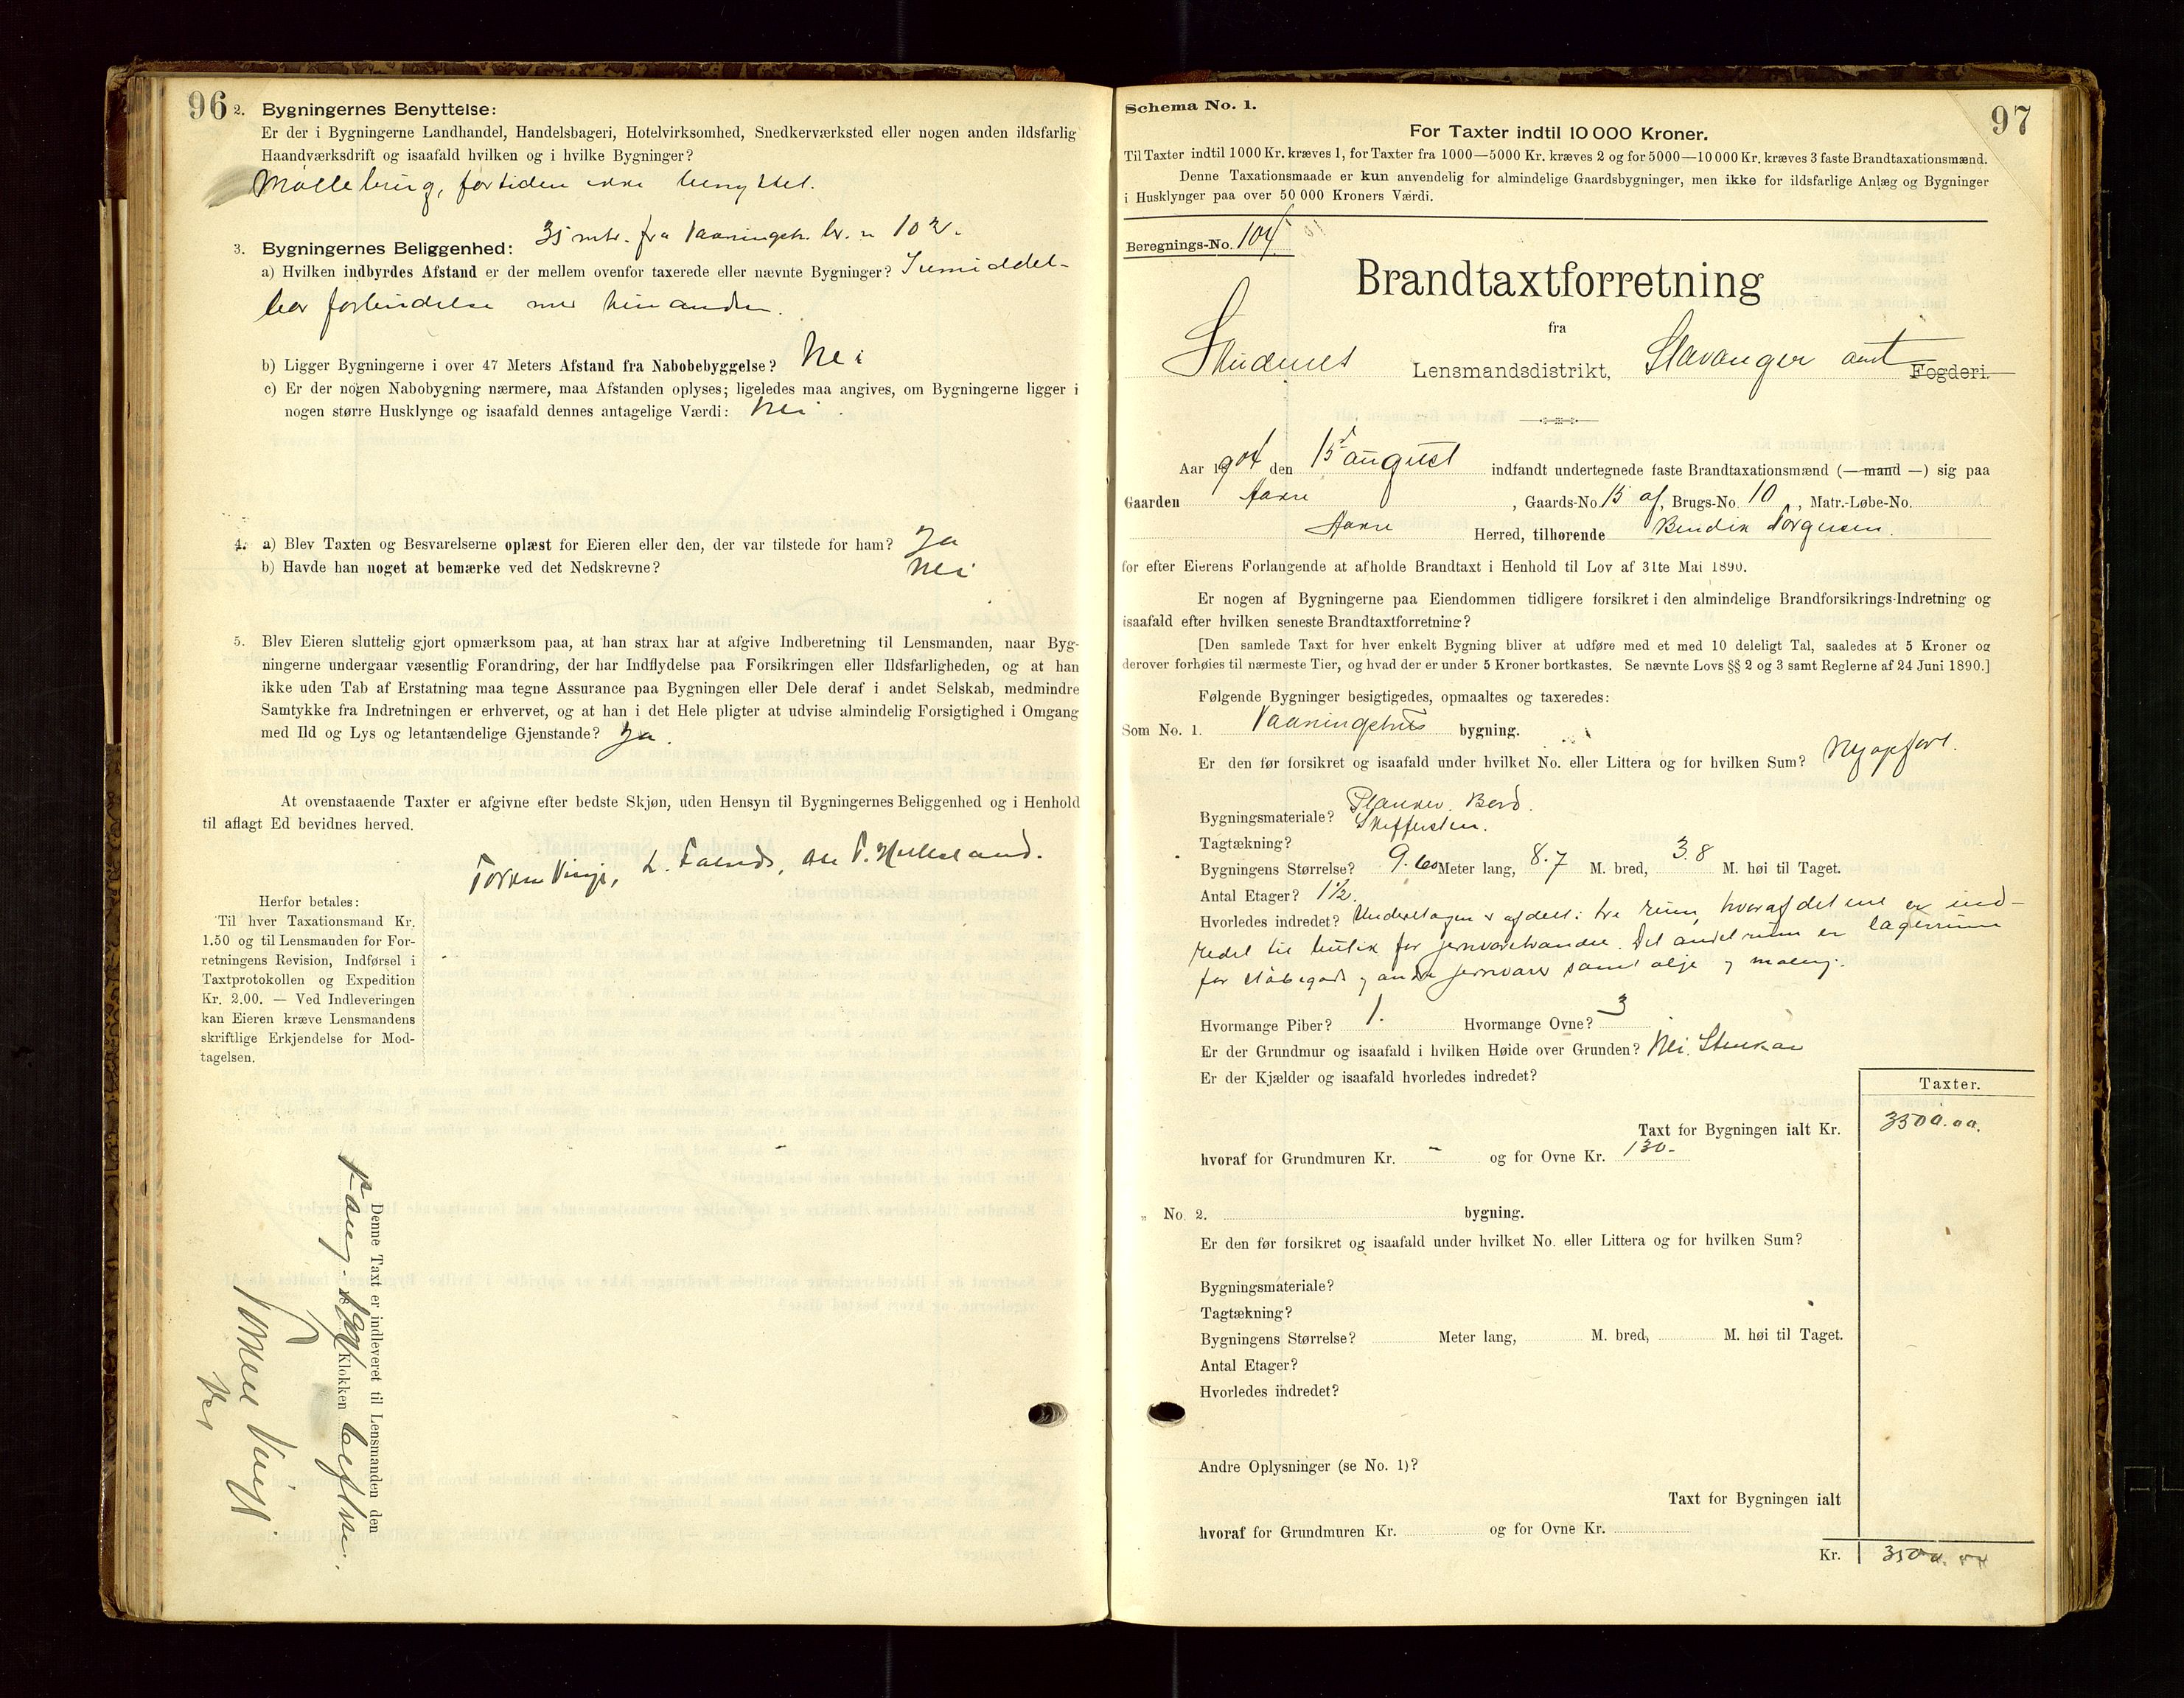 96
2. Bygningernes Benyttelse:
Er der i Bygningerne Landhandel, Handelsbageri, Hotelvirksomhed, Snedkerværksted eller nogen anden ildsfarlig
Haandværksdrift og isaafald hvilken og i hvilke Bygninger?
Møllebrug, fortiden ikke benyttet.
35 mtr. fra Vaaningsh. br. n 102.
3. Bygningernes Beliggenhed:
a) Hvilken indbyrdes Afstand er der mellem ovenfor taxerede eller nævnte Bygninger? Iumiddel-
bar forbindelse med hinanden.
b) Ligger Bygningerne i over 47 Meters Afstand fra Nabobebyggelse? Nei
c) Er der nogen Nabobygning nærmere, maa Afstanden oplyses; ligeledes maa angives, om Bygningerne ligger i
nogen større Husklynge og isaafald dennes antagelige Værdi: Nei
4. a) Blev Taxten og Besvarelserne oplæst for Eieren eller den, der var tilstede for ham? Ja
b) Havde han noget at bemærke ved det Nedskrevne? Nei
5. Blev Eieren sluttelig gjort opmærksom paa, at han strax har at afgive Indberetning til Lensmanden, naar Byg-
ningerne undergaar væsentlig Forandring, der har Indflydelse paa Forsikringen eller Ildsfarligheden, og at han
ikke uden Tab af Erstatning maa tegne Assurance paa Bygningen eller Dele deraf i andet Selskab, medmindre
Samtykke fra Indretningen er erhvervet, og at han i det Hele pligter at udvise almindelig Forsigtighed i Omgang
med Ild og Lys og letantændelige Gjenstande? Ja.
At ovenstaaende Taxter er afgivne efter bedste Skjøn, uden Hensyn til Bygningernes Beliggenhed og i Henhold
til aflagt Ed bevidnes herved.
Torken Vinje, L. Falnes, Ole P.
Herfor betales:
Til hver Taxationsmand Kr.
1.50 og til Lensmanden for For-
retningens Revision, Indførsel i
Taxtprotokollen og Expedition
Kr. 2.00. — Ved Indleveringen
kan Eieren kræve Lensmandens
skriftlige Erkjendelse for Mod-
tagelsen.
Denne Taxt er indleveret til Lensmanden den
aug. 1904 Klokken
Vinje
97
Schema No. 1.
For Taxter indtil 10 000 Kroner.
Til Taxter indtil 1000 Kr. kræves 1, for Taxter fra 1000—5000 Kr. kræves 2 og for 5000—10 000 Kr. kræves 3 faste Brandtaxationsmænd.
Denne Taxationsmaade er kun anvendelig for almindelige Gaardsbygninger, men ikke for ildsfarlige Anlæg og Bygninger
i Husklynger paa over 50 000 Kroners Værdi.
Beregnings-No. 104
Brandtaxtforretning
fra
Skudenes Lensmandsdistrikt, Stavanger amt Fogderi.
Aar 1904 den 15 august indfandt undertegnede faste Brandtaxationsmænd (— mand —) sig paa
Gaarden Aakre, Gaards-No. 15 af, Brugs-No. 10, Matr.-Løbe-No.
Aakre Herred, tilhørende Bendik Torgersen.
for efter Eierens Forlangende at afholde Brandtaxt i Henhold til Lov af 31te Mai 1890.
Er nogen af Bygningerne paa Eiendommen tidligere forsikret i den almindelige Brandforsikrings-Indretning og
isaafald efter hvilken seneste Brandtaxtforretning?
[Den samlede Taxt for hver enkelt Bygning bliver at udføre med et med 10 deleligt Tal, saaledes at 5 Kroner og
derover forhøies til nærmeste Tier, og hvad der er under 5 Kroner bortkastes. Se nævnte Lovs §§ 2 og 3 samt Reglerne af 24 Juni 1890.]
Følgende Bygninger besigtigedes, opmaaltes og taxeredes:
Som No. 1. Vaaningshus bygning.
Er den før forsikret og isaafald under hvilket No. eller Littera og for hvilken Sum? Nyopført.
Bygningsmateriale? Planker. Bord.
Tagtækning? Skiffersten.
Bygningens Størrelse? 9.60 Meter lang, 8.7 M. bred, 3.8 M. høi til Taget.
Antal Etager? 1½.
Hvorledes indredet? Underetagen er afdelt i tre rum, hvoraf det ene er ind-
redet til butik for jernvarehandel. Det andet rum er lagerrum
for støbegods og andre jernvarer samt olje og maling.
Hvormange Piber? 1. Hvormange Ovne? 3
Er der Grundmur og isaafald i hvilken Høide over Grunden? Nei. Stenkar
Er der Kjælder og isaafald hvorledes indredet?
Taxter.
Taxt for Bygningen ialt Kr. 3500.00.
hvoraf for Grundmuren Kr. - og for Ovne Kr. 130-
„ No. 2. bygning.
Er den før forsikret og isaafald under hvilket No. eller Littera og for hvilken Sum?
Bygningsmateriale?
Tagtækning?
Bygningens Størrelse? Meter lang, M. bred, M. høi til Taget.
Antal Etager?
Hvorledes indredet?
Andre Oplysninger (se No. 1)?
Taxt for Bygningen ialt
hvoraf for Grundmuren Kr. og for Ovne Kr.
Kr. 3500.00